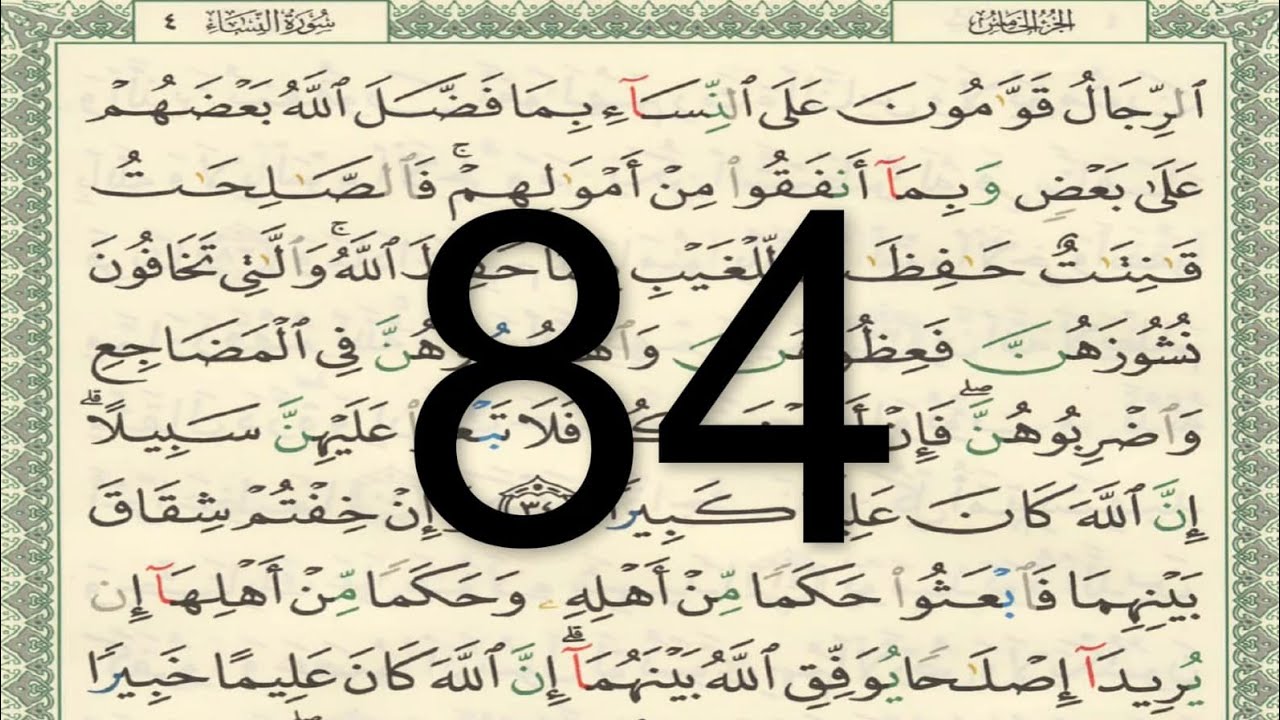 الجُزْءُ الخَامِسُ
سُورَةُ النِّسَاءِ ٤
ٱلرِّجَالُ قَوَّٰمُونَ عَلَى ٱلنِّسَآءِ بِمَا فَضَّلَ ٱللَّهُ بَعْضَهُمْ
عَلَىٰ بَعْضٍ وَبِمَآ أَنفَقُوا۟ مِنْ أَمْوَٰلِهِمْ ۚ فَٱلصَّـٰلِحَـٰتُ
قَـٰنِتَـٰتٌ لِّلْغَيْبِ حَفِظَ ٱللَّهُ ۚ وَٱلَّـٰتِى تَخَافُونَ
نُشُوزَهُنَّ فَعِظُوهُنَّ فِى ٱلْمَضَاجِعِ
وَٱضْرِبُوهُنَّ ۖ فَإِنْ فَلَا عَلَيْهِنَّ سَبِيلًا ۗ
إِنَّ ٱللَّهَ كَانَ كَبِيرًا ٣٤ وَإِنْ خِفْتُمْ شِقَاقَ
بَيْنِهِمَا فَٱبْعَثُوا۟ حَكَمًا مِّنْ أَهْلِهِۦ وَحَكَمًا مِّنْ أَهْلِهَآ إِن
يُرِيدَآ إِصْلَـٰحًا يُوَفِّقِ ٱللَّهُ بَيْنَهُمَآ ۗ إِنَّ ٱللَّهَ كَانَ عَلِيمًا خَبِيرًا
84